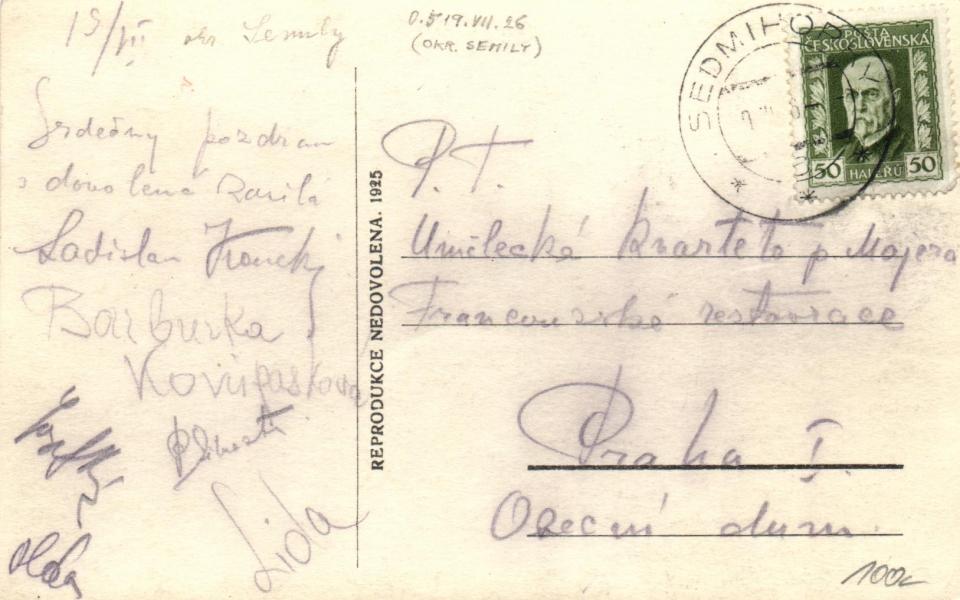 19/VII okr Semily
D.S 19.VII.26
(OKR. SEMILY)
SEDMIHORKY
POŠTA
ČESKOSLOVENSKÁ
50 HALÉŘŮ 50
Srdečný pozdrav
s dovolené zasílá
Ladislav
Barburka
Lida
Olda
REPRODUKCE NEDOVOLENA. 1925
P. T.
Umělecké kvarteto p Majera
Francouzské restaurace
Praha I.
Obecní dum.
100,-